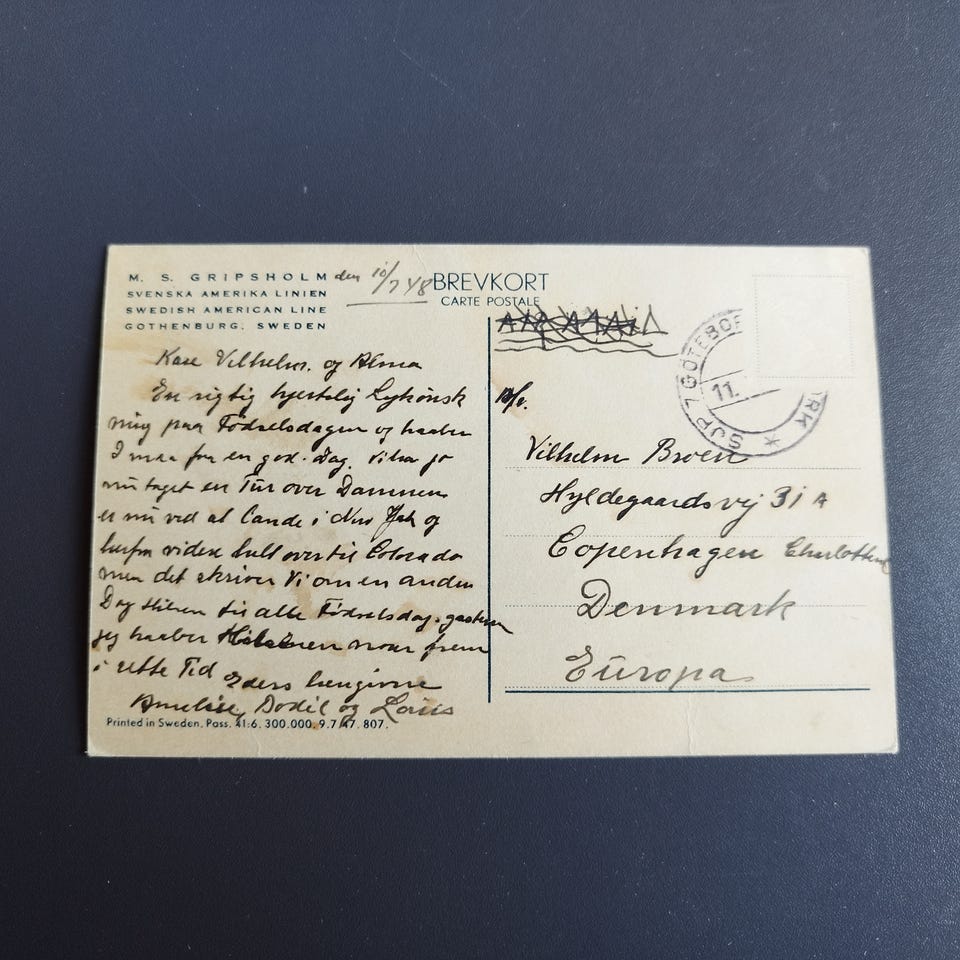 M. S. GRIPSHOLM
SVENSKA AMERIKA LINIEN
SWEDISH AMERICAN LINE
GOTHENBURG, SWEDEN
den 10/7 48
BREVKORT
CARTE POSTALE
Kære Vilhelm. og Alma
En rigtig hjertelig Lykønsk
ning paa Fødselsdagen og haaber
I maa faa en god. Dag. Vi har jo
nu taget en Tur over Dammen
er nu ved at lande i New York og
herfra videre helt over til Colorado
men det skriver Vi om en anden
Dag Hilsen til alle Fødselsdags gæsterne
jeg haaber Hilsenen naar frem
i rette Tid Eders hengivne
Bodil og Louis
Printed in Sweden. Pass. 41:6. 300.000. 9.7.47. 807.
GÖTEBOR
11.
Vilhelm Broen
Hyldegaardsvej 31 A
Copenhagen Charlottenl
Denmark
Europa